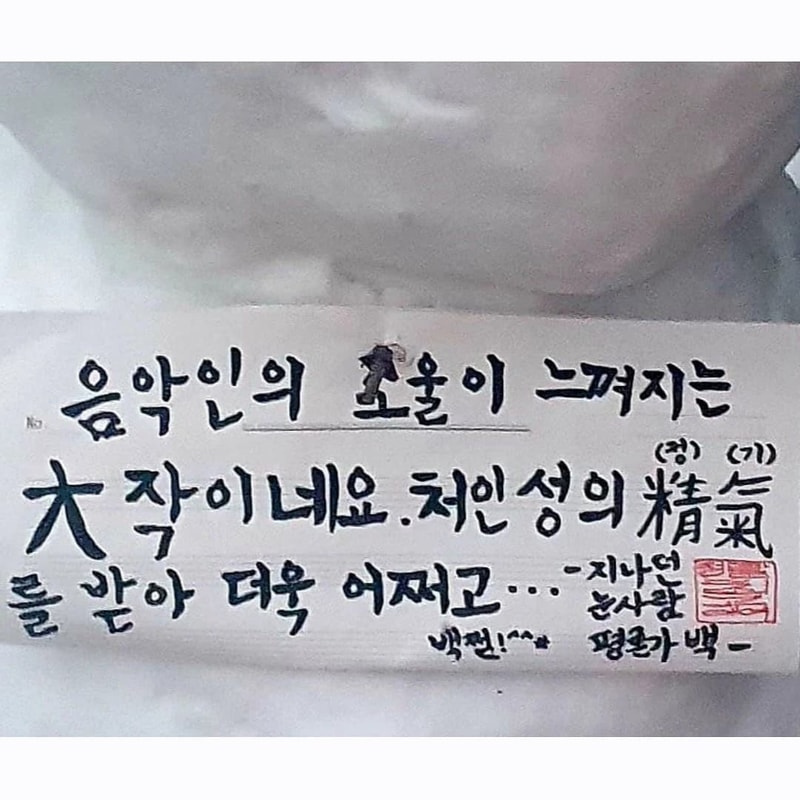 No.
음악인의 소울이 느껴지는
(정) (기)
大작이네요. 처인성의 精氣
를 받아 더욱 어쩌고... -지나던
눈사람
평론가 백-
백쩜!^^*